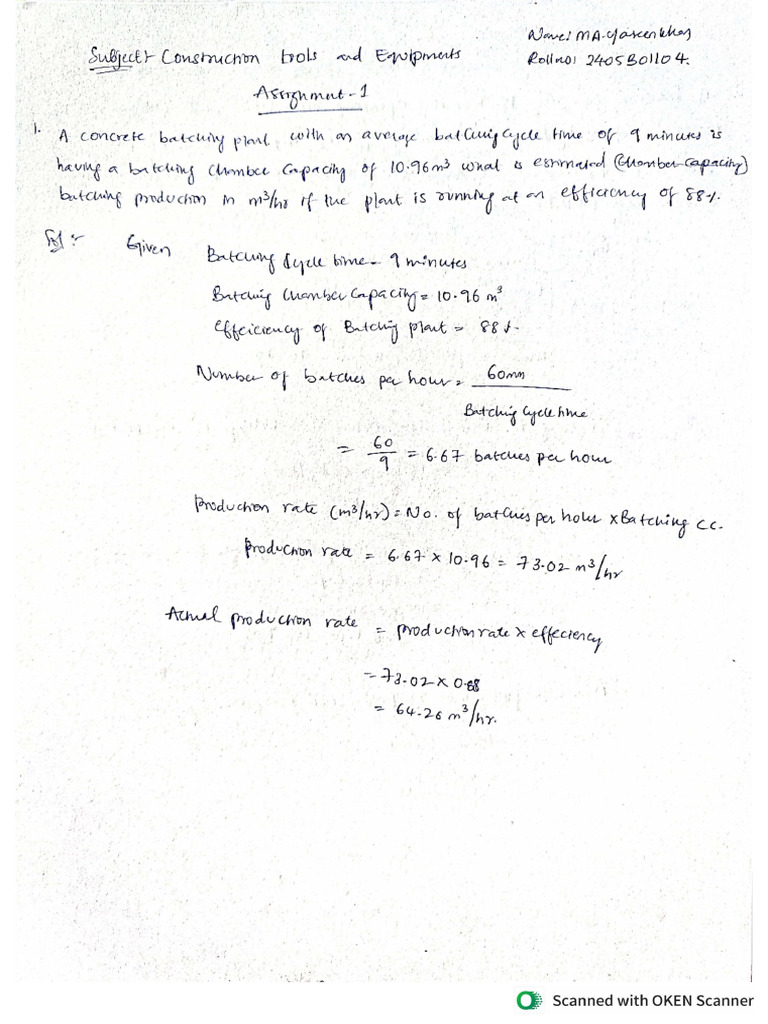 Name: MA. Yaseen khan
Subject:- Construction tools and Equipments
Roll no: 2405B01104.
Assignment-1
1. A concrete batching plant with an average batching cycle time of 9 minutes is
having a batching chamber capacity of 10.96m³ what is estimated (chamber capacity)
batching production in m³/hr if the plant is running at an efficiency of 88%.
Sol:- Given Batching Cycle time - 9 minutes
Batching chamber capacity = 10.96 m³
Effeiciency of Batching plant = 88%.
Number of batches per hour = 60min
Batching Cycle time
= 60/9 = 6.67 batches per hour
Production rate (m³/hr) = No. of batches per hour × Batching C.C.
Production rate = 6.67 × 10.96 = 73.02 m³/hr
Actual production rate = production rate × effeciency
= 73.02 × 0.88
= 64.26 m³/hr.
Scanned with OKEN Scanner